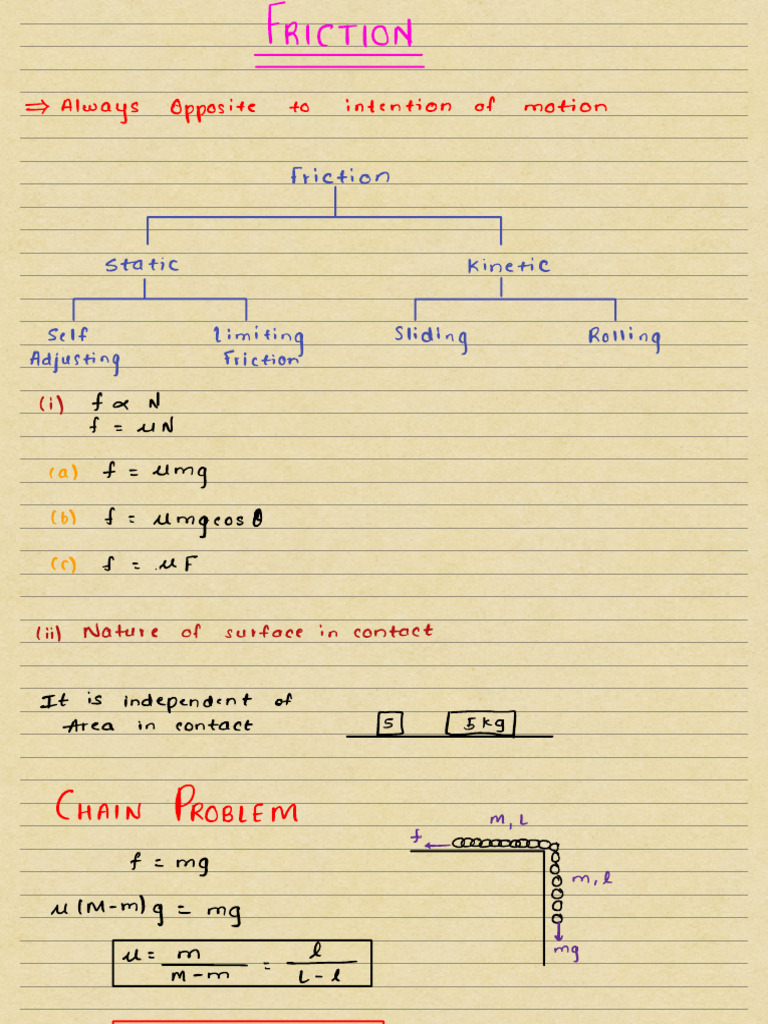 FRICTION
⇒ Always Opposite to intention of motion
Friction
Static Kinetic
Self Adjusting Limiting Friction Sliding Rolling
(i) f ∝ N
f = μN
(a) f = μmg
(b) f = μmgcosθ
(c) f = μF
(ii) Nature of surface in contact
It is independent of
Area in contact
5 5kg
CHAIN PROBLEM
m, L
f
f = mg
m, l
μ(M-m)g = mg
mg
μ = m/(M-m) = l/(L-l)